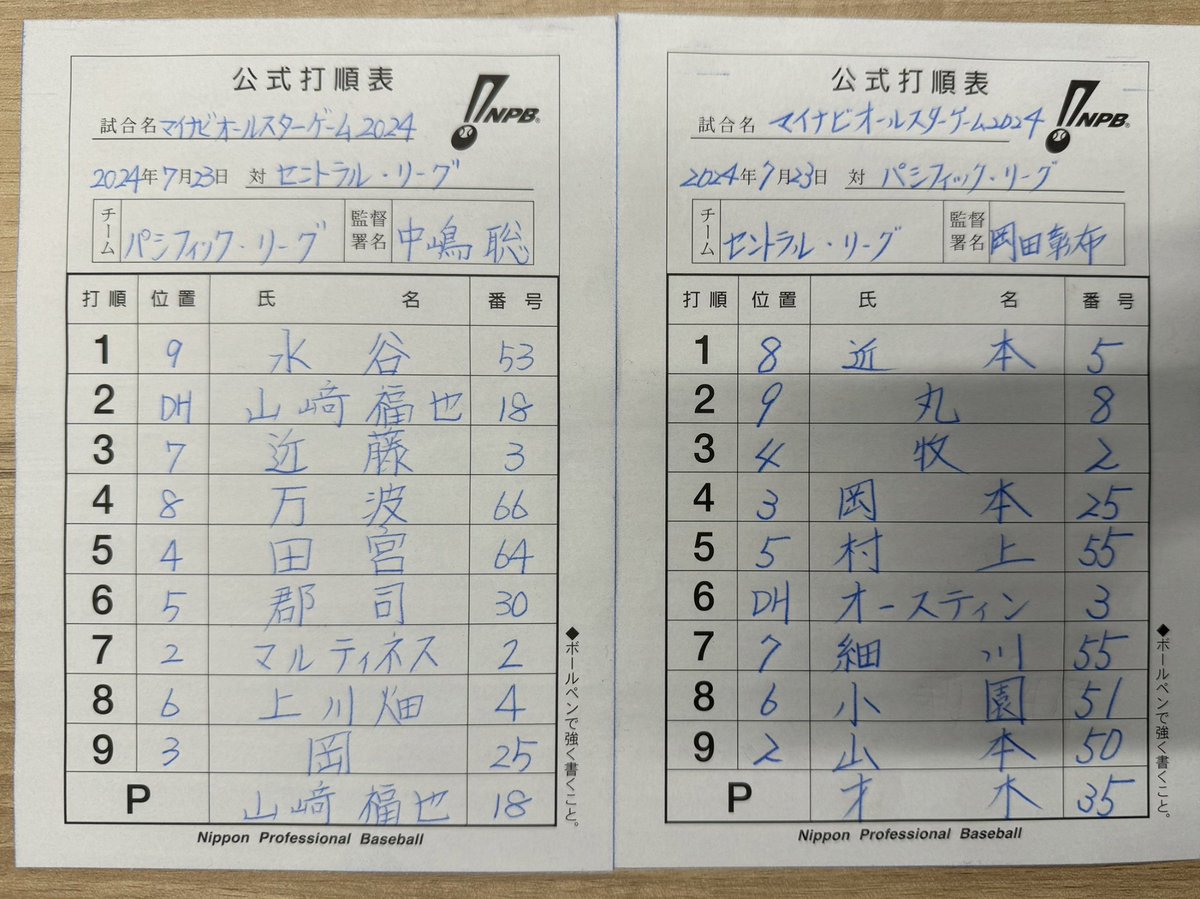 公式打順表
NPB
試合名 マイナビオールスターゲーム2024
2024年7月23日 対 セントラル・リーグ
チーム パシフィック・リーグ 監督署名 中嶋聡
打順 位置 氏名 番号
1 9 水谷 53
2 DH 山﨑福也 18
3 7 近藤 3
4 8 万波 66
5 4 田宮 64
6 5 郡司 30
7 2 マルティネス 2
8 6 上川畑 4
9 3 岡 25
P 山﨑福也 18
Nippon Professional Baseball
◆ボールペンで強く書くこと。
公式打順表
NPB
試合名 マイナビオールスターゲーム2024
2024年7月23日 対 パシフィック・リーグ
チーム セントラル・リーグ 監督署名 岡田彰布
打順 位置 氏名 番号
1 8 近本 5
2 9 丸 8
3 4 牧 2
4 3 岡本 25
5 5 村上 55
6 DH オースティン 3
7 7 細川 55
8 6 小園 51
9 2 山本 50
P 才木 35
Nippon Professional Baseball
◆ボールペンで強く書くこと。